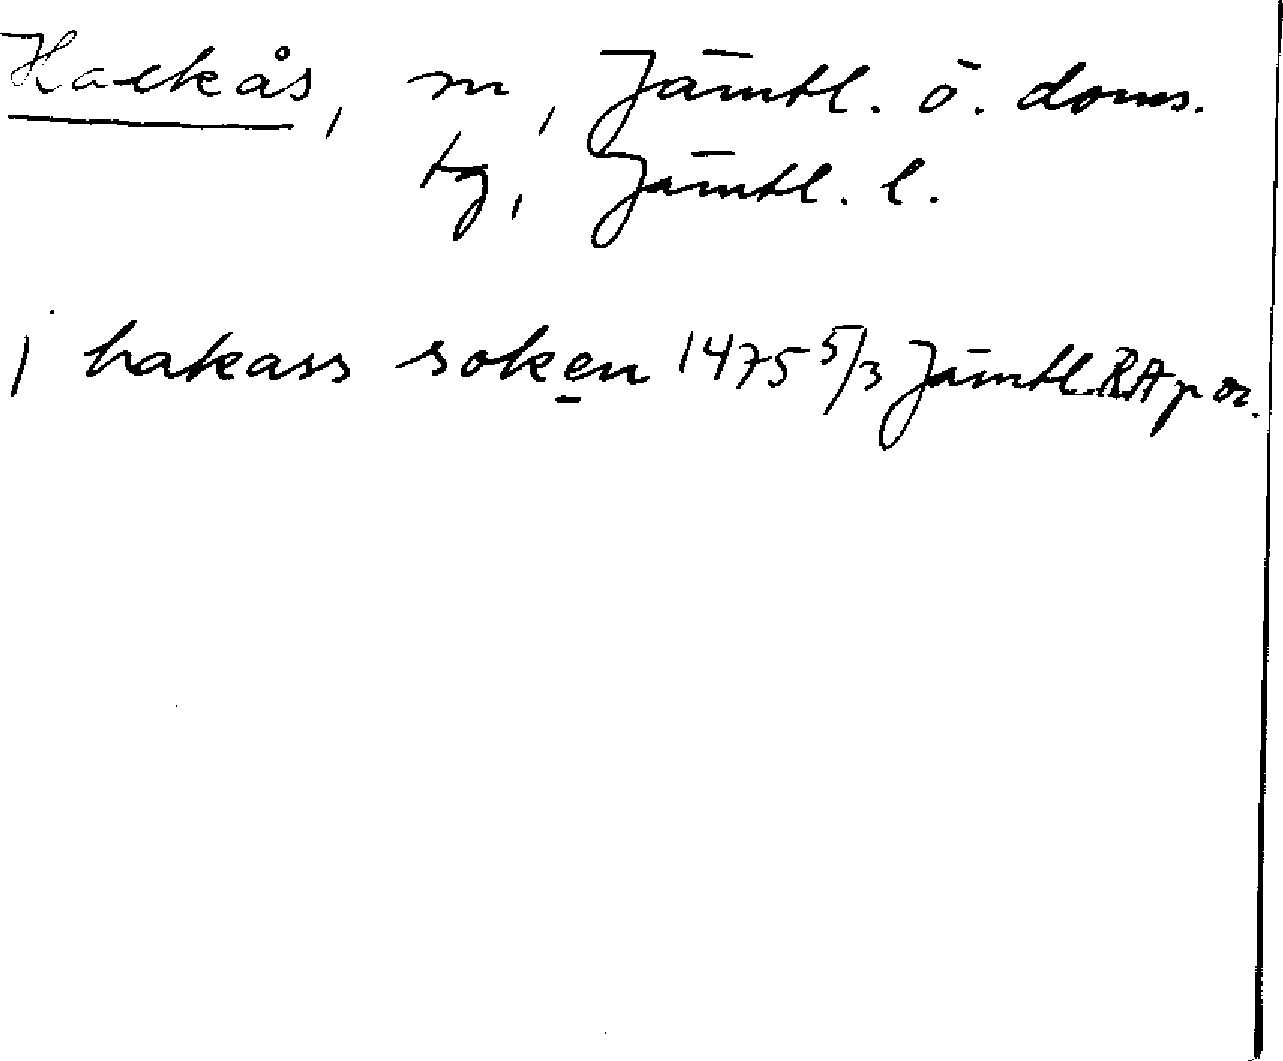 Hackås, sn, Jämtl. ö. doms.
tg, Jämtl. l.
j hakass soken 1475 5/3 Jämtl. RAp or.